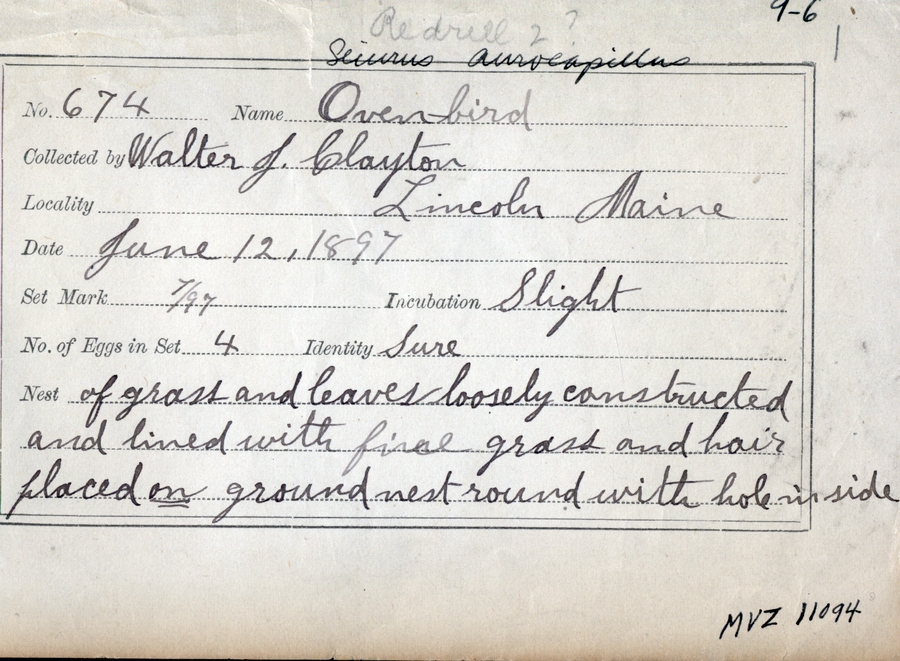 9-6
Redrill 2 ?
Seiurus aurocapillus
No. 674 Name Oven-bird
Collected by Walter J. Clayton
Locality Lincoln Maine
Date June 12, 1897
Set Mark 7/97 Incubation Slight
No. of Eggs in Set 4 Identity Sure
Nest of grass and leaves loosely constructed
and lined with fine grass and hair
placed on ground nest round with hole in side
MVZ 11094